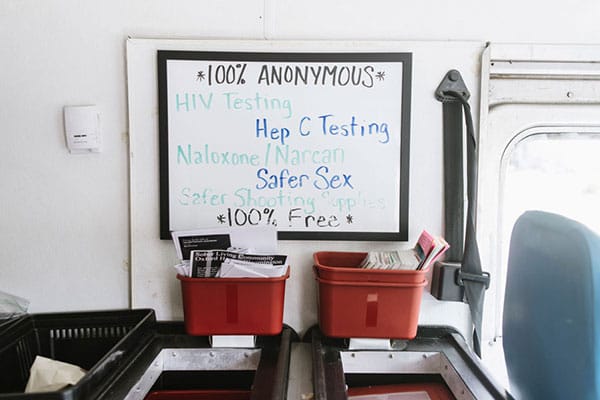 *100% ANONYMOUS*
HIV Testing
Hep C Testing
Naloxone/Narcan
Safer Sex
Safer Shooting Supplies
*100% Free*
Sober Living Community
Oxford